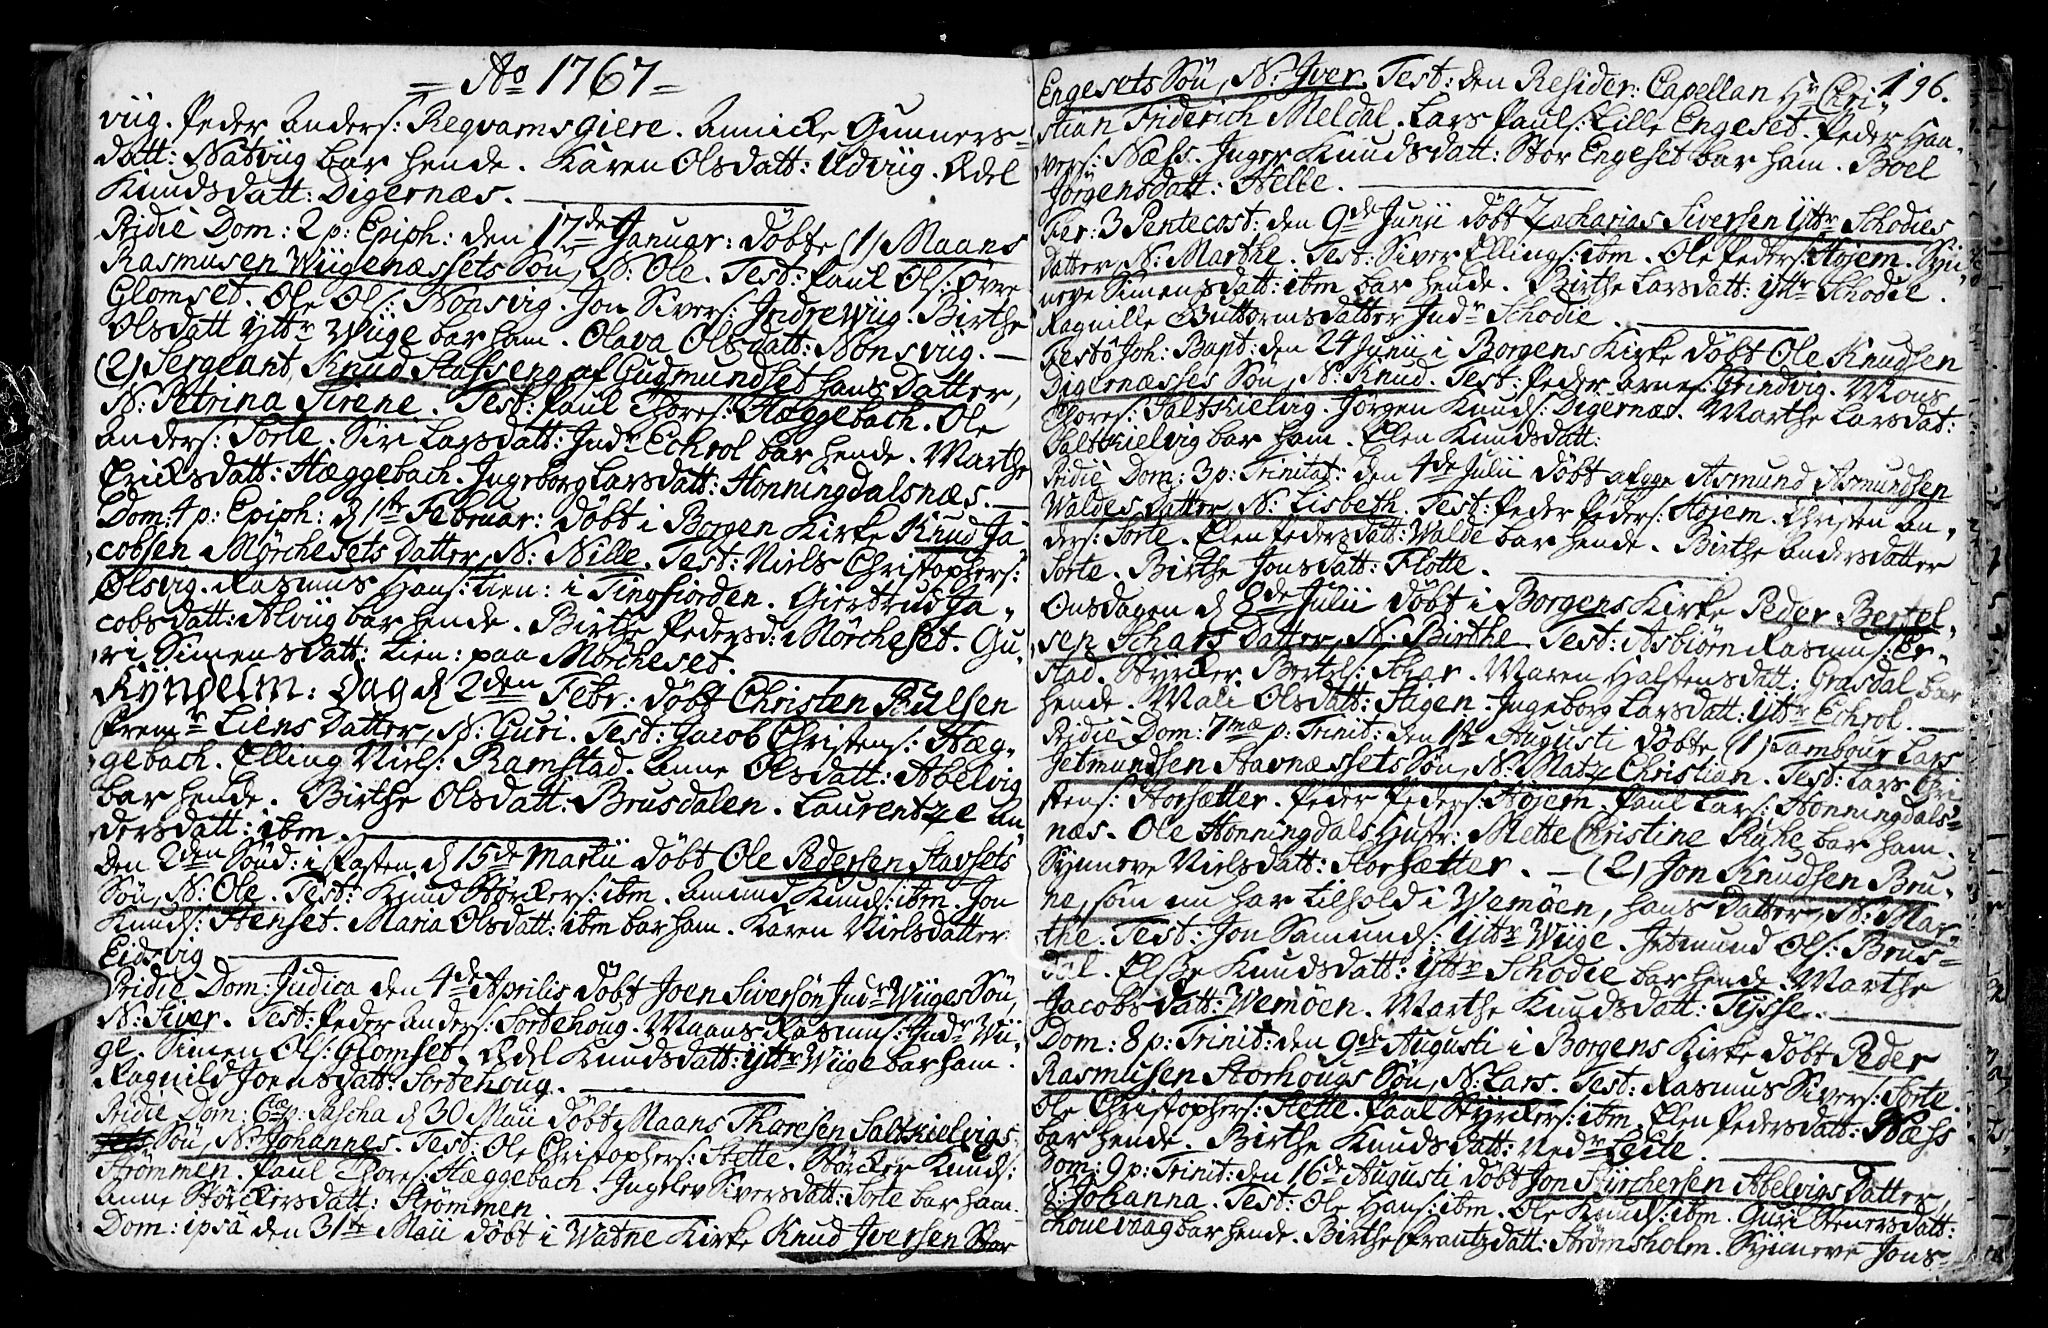 = Ao 1767 =
viig. Peder Anders: Reqvamsgiere. Annicke Gunners-
datt: Natviig bar hende. Karen Olsdatt: Udviig. Ædel
Knudsdatt: Digernæs.
Pridie Dom: 2 p: Epiph: den 17de Januar: döbte (1) Maans
Rasmusen Wiigenæssets Sön, N: Ole. Test: Paul Ols: Övre
Glomset. Ole Ols: Nonsvig. Jon Sivers: Indre Wiig. Birthe
Olsdatt Yttr Wiige bar ham. Olava Olsdatt: Nonsviig. —
(2) Sergeant Knud Staffseng af Gudmundset hans Datter,
N: Petrina Sirene. Test: Paul Thores: Hæggebach. Ole
Anders: Sorte. Siri Larsdatt: Indr Echrol bar hende. Marthe
Ericksdatt: Hæggebach. Ingeborg Larsdatt: Honningdalsnæs. —
Dom: 4 p: Epiph: d 1ste Februar: döbt i Borgen Kirke Knud Ja
cobsen Mörchesets Datter, N: Nille. Test: Niels Christophers:
Ölsvig. Rasmus Hans: tien: i Tingfiorden. Giertrud Ja,
cobsdatt: Alviig bar hende. Birthe Pedersd: Mörcheset. Gu,
ri Simensdatt: tien: paa Mörcheset.
Kÿndelm: Dag d 2den Febr: döbt Christen Paulsen
Fremr Liens Datter, N: Guri. Test: Jacob Christens: Hæg-
gebach. Elling Niels: Ramstad. Anne Olsdatt: Abelvig
bar hende. Birthe Olsdatt: Brusdalen. Laurentze An
dersdatt: ibm.
Den 2den Sönd: i Fasten d 15de Martii döbt Ole Pedersen Stavsets
Sön, N: Ole. Test: Knud Störckers: ibm. Amund Knuds: ibm. Jon
Knuds: Stenset. Maria Olsdatt: ibm bar ham. Karen Nielsdatter
Eidsvig.
Pridie Dom: Judica den 4de Aprilis döbt Joen Siversön Indr Wiiges Sön,
N: Siver. Test: Peder Anders: Sortehoug. Maans Rasmus: Indr Wii,
ge. Simen Ols: Glomset. Ædel Knudsdatt: Yttr Wiige bar ham.
Ragnild Joensdatt: Sortehoug.
Pridie Dom: 6tæ p: Pascha d 30 Maii döbt Maans Thoresen Saltkielvigs
Sön, N: Johannes. Test: Ole Christophers: Stette. Störcker Knuds:
Strömmen. Paul Thores: Hæggebach. Ingelev Siversdatt: Sorte bar ham.
Anne Störckersdatt: Strömmen.
Dom: ipsa den 31te Maii döbt i Watne Kirke Knud Iversen Stor
Engesets Sön, N: Iver. Test: den Resider: Capellan Hr Chri- 196.
stian Friderich Meldal. Lars Pauls: Lille Engeset. Peder Haa,
vers: Næss. Inger Knudsdatt: Stor Engeset bar ham. Boel
Jörgensdatt: Helle.
Fer: 3 Pentecost: den 9de Junii döbt Zacharias Siversen Yttr Schodies
Datter, N: Marthe. Test: Siver Ellings: ibm. Ole Peders: Höjem. Syn
neve Simensdatt: ibm bar hende. Birthe Larsdatt: Yttr Schodie.
Ragnille Guttormsdatter Indr Schodie.
Festo Joh: Bapt: den 24 Junii i Borgens Kirke döbt Ole Knudsen
Digernæsses Sön, N: Knud. Test: Peder Arnes: Grindvig. Mons
Thores: Saltkielvig. Jörgen Knuds: Digernæs. Marthe Larsdat:
Saltkielvig bar ham. Elen Knudsdatt:
Pridie Dom: 3 p: Trinitat: den 4de Julii döbt afgge Asmund Asmundsen
Waldes Datter, N: Lisbeth. Test: Peder Peders: Höjem. Christen An,
ders: Sorte. Elen Pedersdatt: Walde bar hende. Birthe Andersdatter
Sorte. Birthe Jonsdatt: Flotte.
Onsdagen d 8de Julii döbt i Borgens Kirke Peder Bertel,
sen Schars Datter, N: Birthe. Test: Asbiörn Rasmus: Er,
stad. Styrcker Bertels: Schar. Maren Halstensdatt: Grasdal bar
hende. Mali Olsdatt: Hagen. Ingeborg Larsdatt: Yttr Echrol. —
Pridie Dom: 7mæ p: Trinit: den 1ste Augusti döbte (1) Tambour Lars
Jetmundsen Stavnæssets Sön, N: Matz Christian. Test: Lars Chri
stens: Storsætter. Peder Peders: Höjem. Paul Lars: Honningdals=
næs. Ole Honningdals Hustr: Mette Christine Ruhe bar ham.
Synneve Nielsdatt: Storsætter. — (2) Jon Knudsen Bru-
ne, som nu har tilhold i Wemöen, hans Datter, N: Mar-
the. Test: Jon Samunds: Yttr Wiige. Jetmund Ols: Brus=
dal. Elsze Knudsdatt: Yttr Schodie bar hende. Marthe
Jacobsdatt: Wemöen. Marthe Knudsdatt: Tysse.
Dom: 8 p: Trinit: den 9de Augusti i Borgens Kirke döbt Peder
Rasmusen Storhougs Sön, N: Lars. Test: Rasmus Sivers: Sorte.
Ole Christophers: Stette. Paul Styrckers: ibm. Elen Pedersdatt: Næss
bar hende. Birthe Knudsdatt: Nedr Leite.
Dom: 9 p: Trinit: den 16de Augusti döbt Jon Styrchersen Abelvigs Datter,
N: Johanna. Test: Ole Hans: ibm. Ole Knuds: ibm. Guri Stenersdatt:
Schouevaag bar hende. Birthe Frantzdatt: Strömsholm. Synneve Jons=